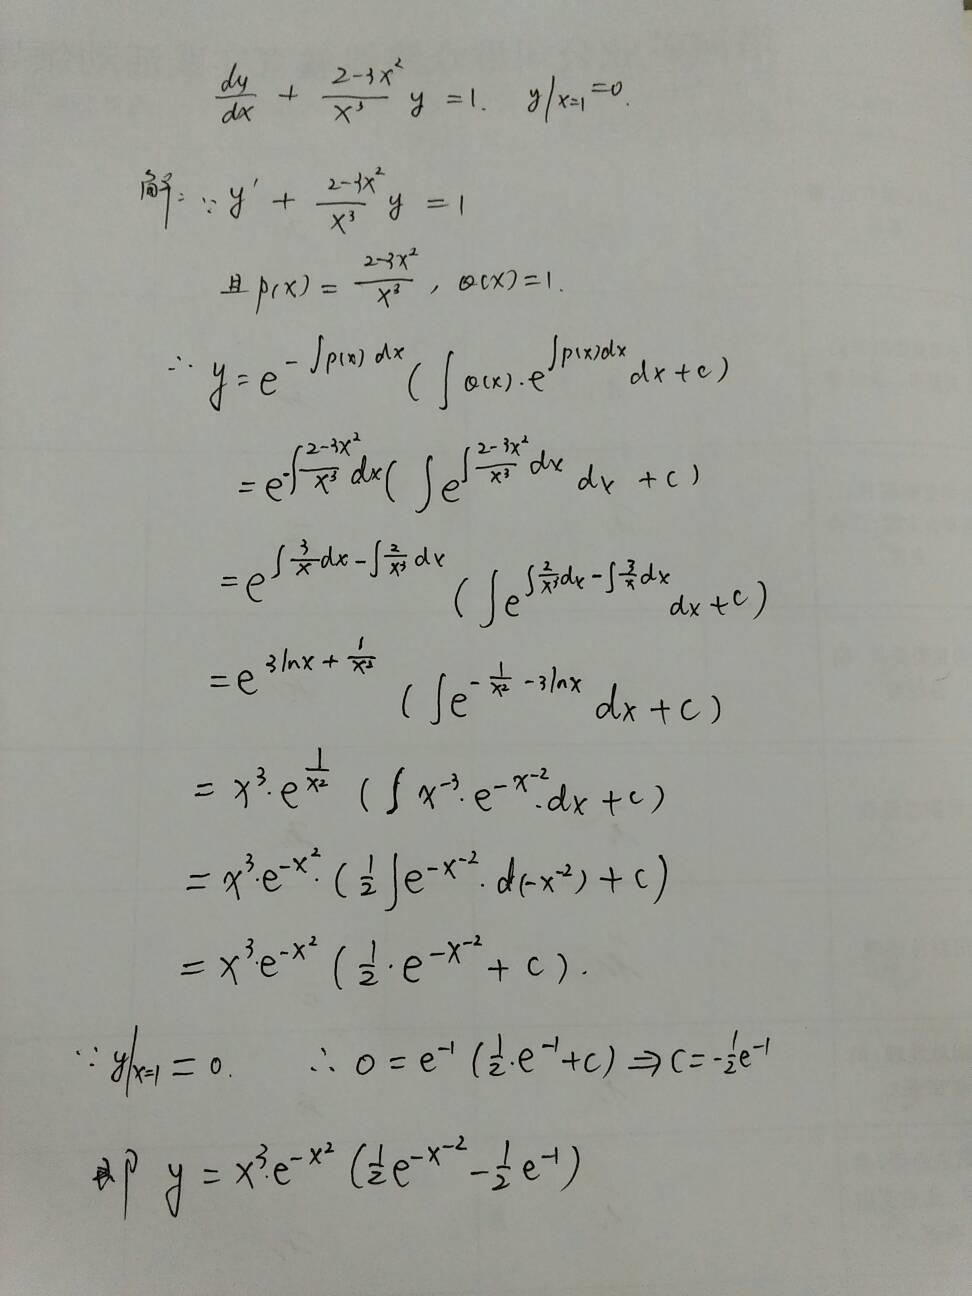 dy/dx + (2-3x²)/x³ y = 1. y|x=1 = 0.
解: ∵ y' + (2-3x²)/x³ y = 1
且 p(x) = (2-3x²)/x³ , Q(x) = 1.
∴ y = e^(-∫p(x) dx) ( ∫ Q(x)·e^(∫p(x)dx) dx + c )
= e^(-∫(2-3x²)/x³ dx) ( ∫ e^(∫(2-3x²)/x³ dx) dx + c )
= e^(∫3/x dx - ∫2/x³ dx) ( ∫ e^(∫2/x³ dx - ∫3/x dx) dx + c )
= e^(3lnx + 1/x²) ( ∫ e^(-1/x² - 3lnx) dx + c )
= x³·e^(1/x²) ( ∫ x⁻³·e^(-x⁻²)·dx + c )
= x³·e^(-x²)·( 1/2 ∫ e^(-x⁻²)·d(-x⁻²) + c )
= x³·e^(-x²) ( 1/2·e^(-x⁻²) + c ).
∵ y|x=1 = 0. ∴ 0 = e⁻¹ ( 1/2·e⁻¹ + c ) ⇒ c = -1/2 e⁻¹
即 y = x³·e^(-x²) ( 1/2 e^(-x⁻²) - 1/2 e⁻¹ )